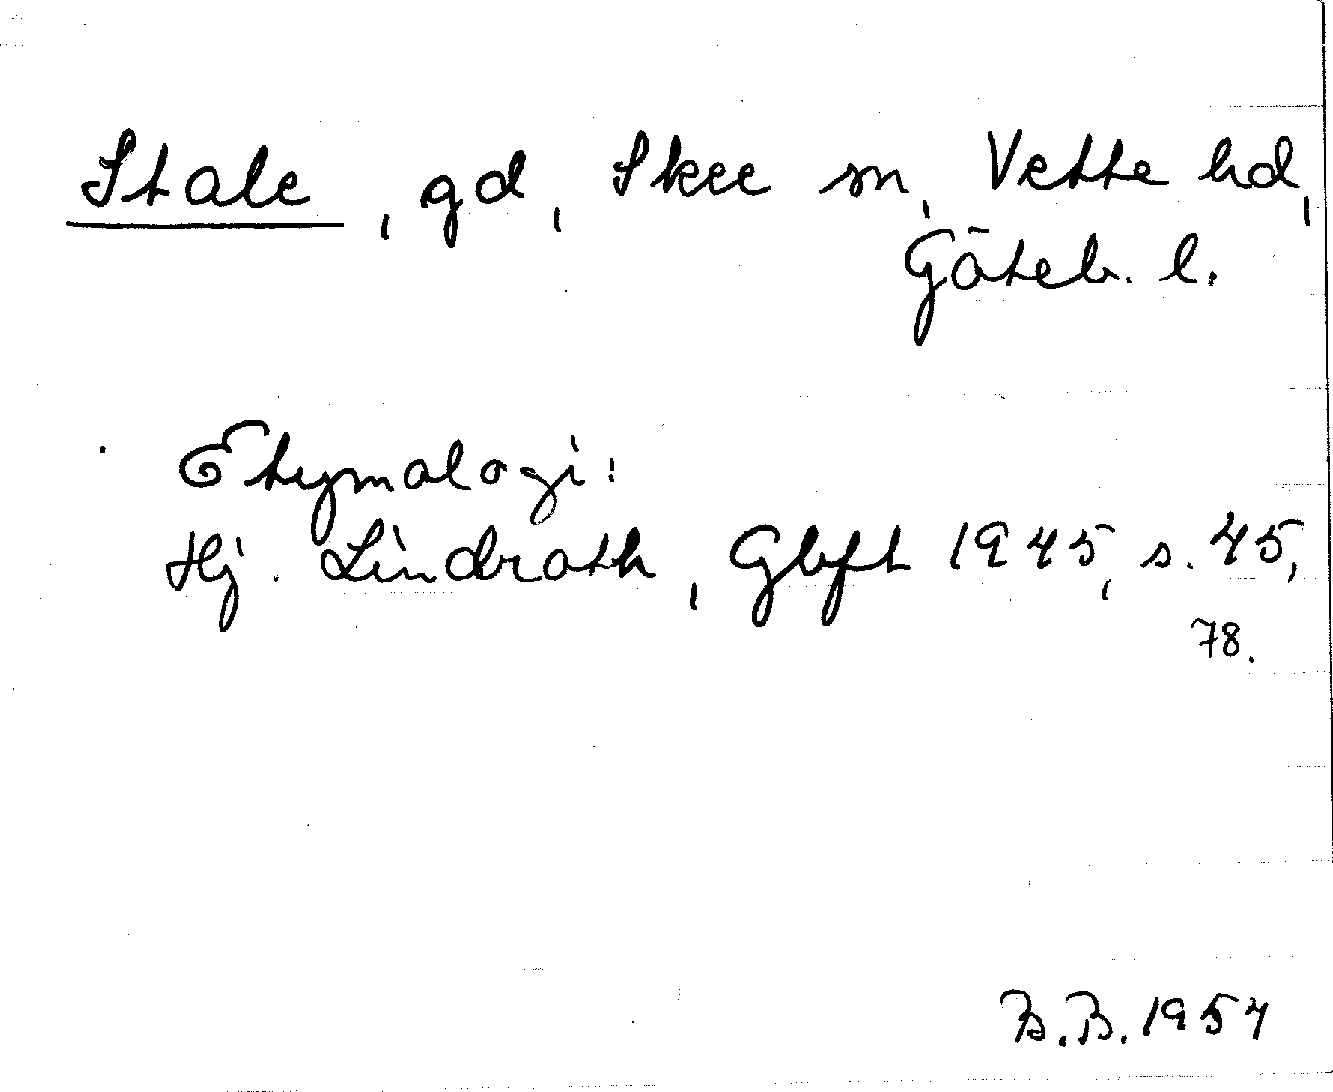 Stale, gd, Skee sn, Vette hd,
Göteb. l.
Etymologi:
Hj. Lindroth, Gbft 1945, s. 45,
78.
B.B. 1954